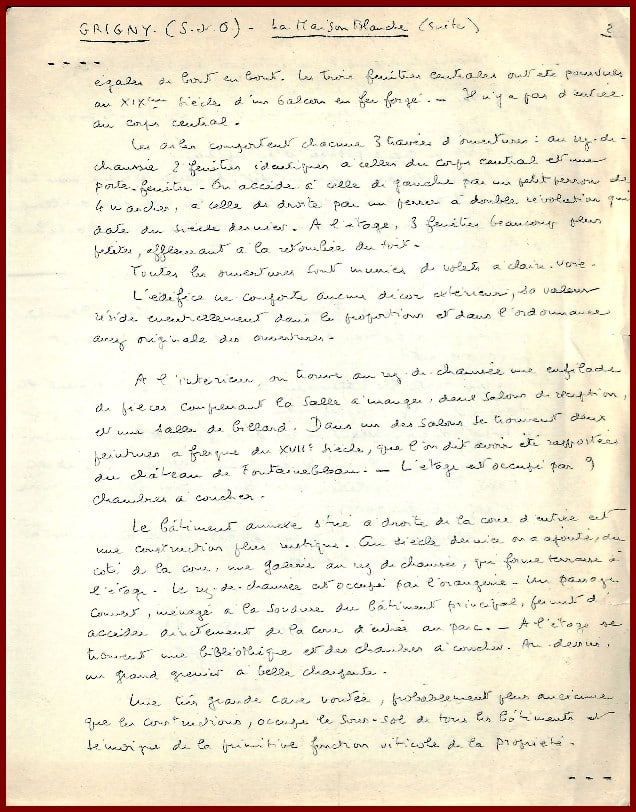 GRIGNY. (S. et O) - La Maison Blanche (suite) 2
égales de bout en bout. Les trois fenêtres centrales ont été pourvues
au XIXème siècle d'un balcon en fer forgé. - Il n'y a pas d'entrée
au corps central.
Les ailes comportent chacune 3 travées d'ouvertures : au rez-de-
chaussée 2 fenêtres identiques à celles du corps central et une
porte-fenêtre - On accède à celle de gauche par un petit perron de
4 marches, à celle de droite par un perron à double révolution qui
date du siècle dernier. A l'étage, 3 fenêtres beaucoup plus
petites, affleurant à la retombée du toit.
Toutes les ouvertures sont munies de volets à claire-voie.
L'édifice ne comporte aucun décor extérieur, sa valeur
réside essentiellement dans les proportions et dans l'ordonnance
assez originale des ouvertures.
A l'intérieur, on trouve au rez-de-chaussée une enfilade
de pièces comprenant la salle à manger, deux salons de réception,
et une salle de billard. Dans un des salons se trouvent deux
peintures à fresque du XVIIe siècle, que l'on dit avoir été rapportées
du château de Fontainebleau. - L'étage est occupé par 9
chambres à coucher.
Le bâtiment annexe situé à droite de la cour d'entrée est
une construction plus rustique. Au siècle dernier on a ajouté, du
coté de la cour, une galerie au rez de chaussée, qui forme terrasse à
l'étage. Le rez-de-chaussée est occupé par l'orangerie - Un passage
couvert, ménagé à la soudure du bâtiment principal, permet d'
accéder directement de la cour d'entrée au parc. - A l'étage se
trouvent une bibliothèque et des chambres à coucher. Au-dessus,
un grand grenier à belle charpente.
Une très grande cave voutée, probablement plus ancienne
que les constructions, occupe le sous-sol de tous les bâtiments et
témoigne de la primitive fonction viticole de la propriété.